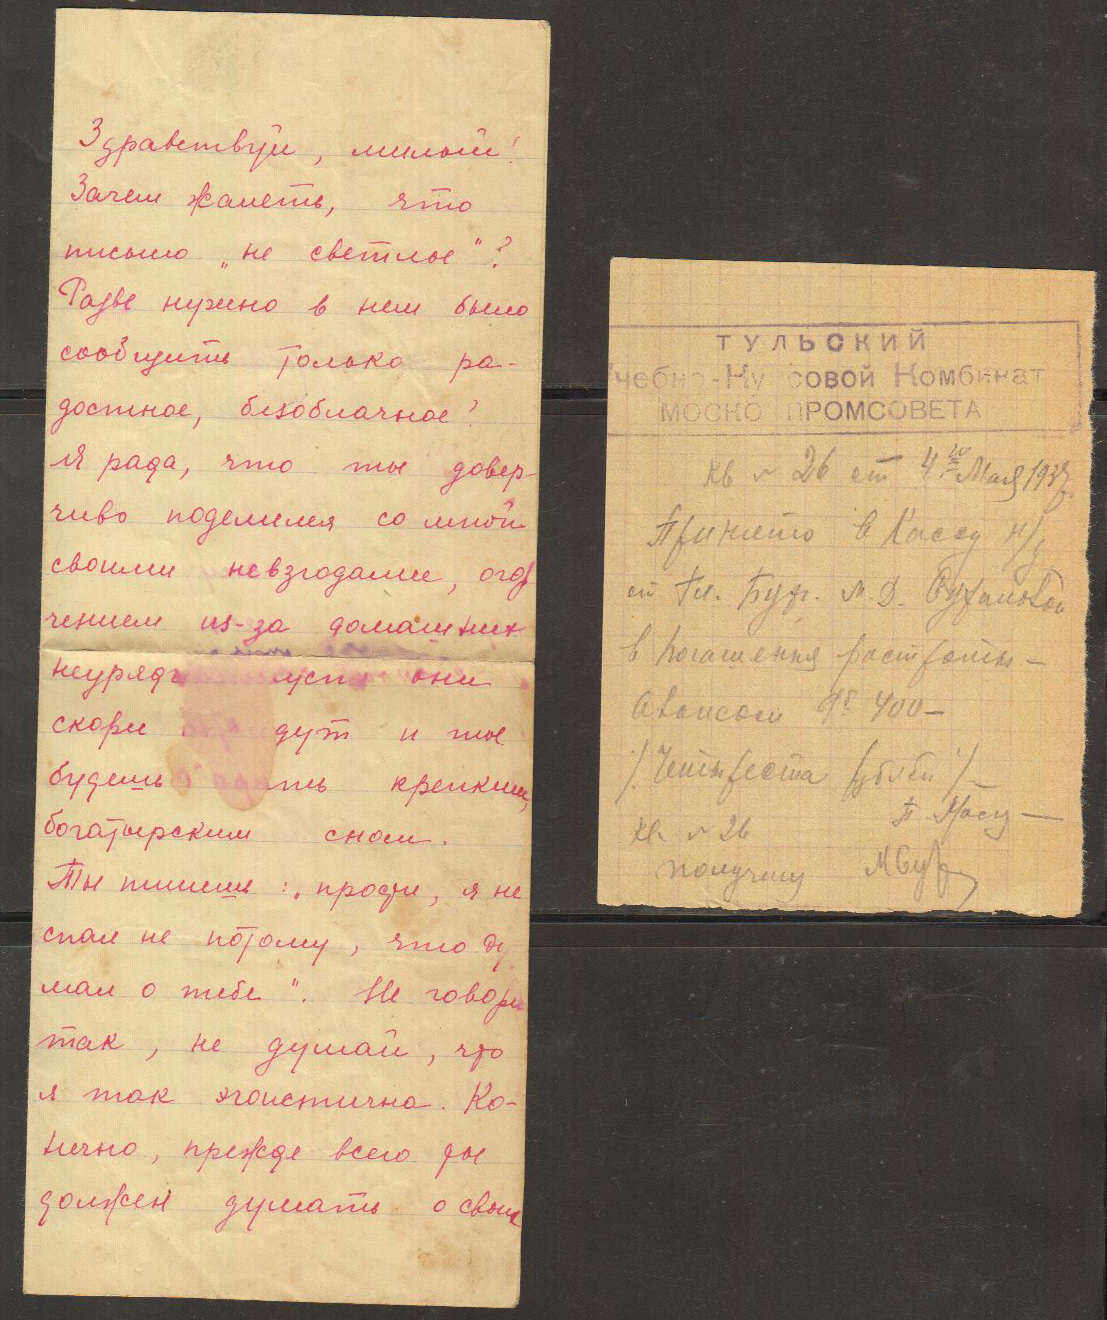 Здравствуй, милый!
Зачем жалеть, что
письмо „не светлое"?
Разве нужно в нем было
сообщить только ра-
достное, безоблачное?
Я рада, что ты довер-
чиво поделился со мной
своими невзгодами, огор
чением из-за домашних
неуряд они
скорей дут и ты
будешь ть крепким,
богатырским сном.
Ты пишешь: „прости, я не
спал не потому, что ду
мал о тебе". Не говори
так, не думай, что
я так эгоистична. Ко-
нечно, прежде всего ты
должен думать о своих
ТУЛЬСКИЙ
Учебно-Ку совой Комбинат
МОСКО ПРОМСОВЕТА
Кв № 26 от 4го Мая 193
Принято в Кассу н/у
от Гл. Бух. М. Д.
в погашения растраты —
авансом 400—
/Четыреста рублей/—
Кв. № 26
получил